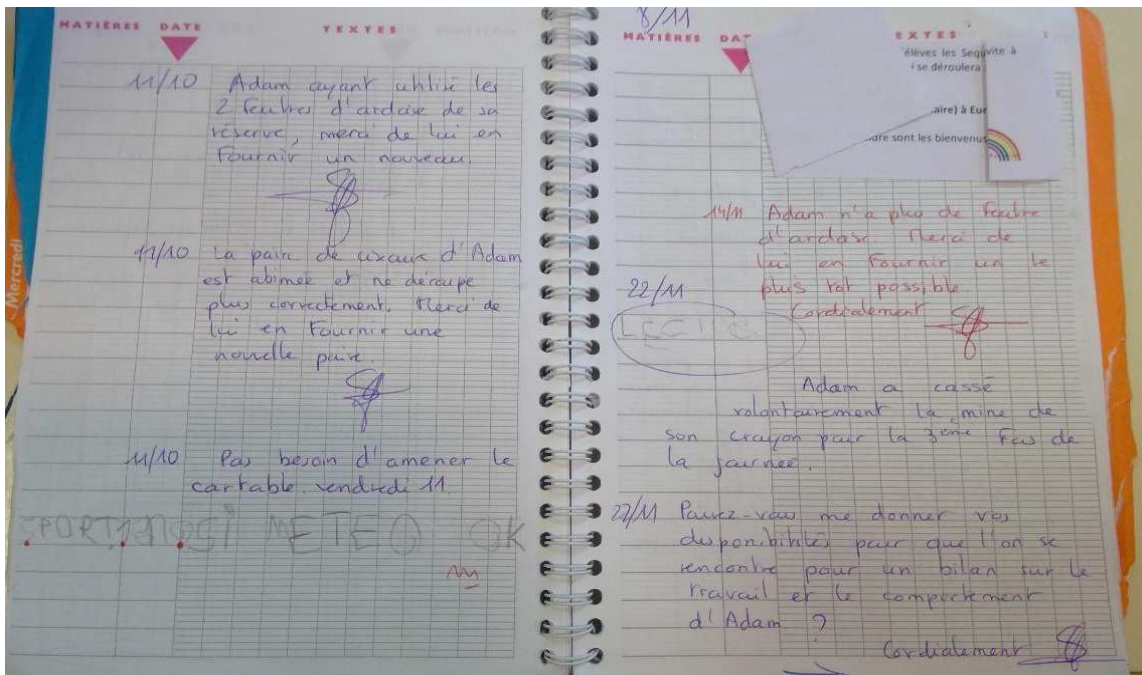 MATIÈRES DATE TEXTES
11/10 Adam ayant utilisé les
2 feutres d'ardoise de sa
réserve, merci de lui en
fournir un nouveau.
11/10 La paire de ciseaux d'Adam
est abimée et ne découpe
plus correctement. Merci de
lui en fournir une
nouvelle paire.
11/10 Pas besoin d'amener le
cartable vendredi 11.
SPORT SI METEO OK
Mercredi
8/11
MATIÈRES DAT EXTES
élèves les Seq vite à
i se déroulera
aire) à Eur
dre sont les bienvenus
14/11 Adam n'a plus de feutre
d'ardoise. Merci de
lui en fournir un le
plus tot possible.
Cordialement
22/11
LECT
Adam a cassé
volontairement la mine de
son crayon pour la 3ème fois de
la journée.
27/11 Pouvez-vous me donner vos
disponibilités pour que l'on se
rencontre pour un bilan sur le
travail et le comportement
d'Adam ?
Cordialement